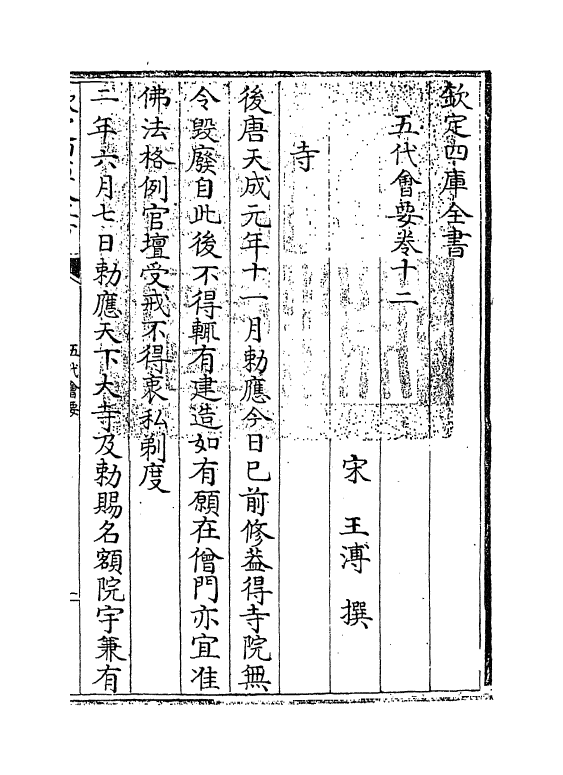 欽定四庫全書
五代會要卷十二
宋 王溥 撰
寺
後唐天成元年十一月勅應今日已前修葢得寺院無
令毀廢自此後不得輒有建造如有願在僧門亦宜准
佛法格例官壇受戒不得衷私剃度
二年六月七日勅應天下大寺及勅賜名額院宇兼有
五代會要